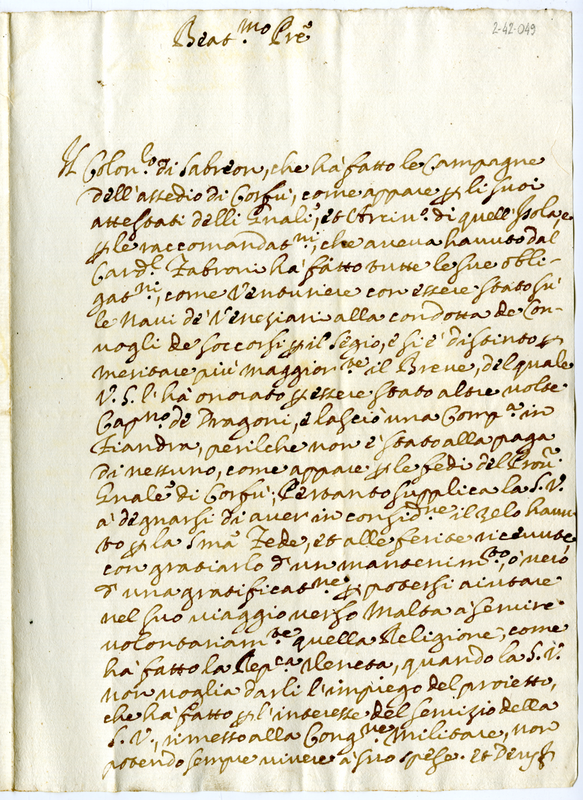 2-42-049
Beat.mo Pre
Il Colon.lo di Sabreon, che hà fatto le Campagne
dell'assedio di Corfù, come appare per li suoi
attestati delli Gnali, et Arciv.o di quell'Isola, e
per le raccomandat.ni, che aveva havuto dal
Card.l Fabroni hà fatto tutte le sue obli-
gat.ni, come Venturiere con essere stato sù
le Navi de Veneziani alla condotta de Con-
vogli de soccorsi per il Regio, e si è distinto per
meritare più maggiorm.te il Breve, del quale
V. S. l'hà onorato per essere stato altre volte
Cap.no de Dragoni, e lasciò una Comp.a in
Fiandra, perilche non è stato alla paga
di nessuno, come appare per le fedi del Prov.
Gnale di Corfù; Pertanto supplica la S. V.
à degnarsi di aver in consid.ne il zelo havu-
to per la Sma Fede, et alle ferite ricevute
con gratiarlo d'un mantenim.to, ò verò
d'una gratificat.ne per potersi aiutare
nel suo viaggio verso Malta à servire
volontariam.te quella Religione, come
hà fatto la Rep.ca Veneta, quando la S. V.
non voglia darli l'impiego del proietto,
che hà fatto per l'interesse del servizio della
S. V., rimesso alla Cong.ne Militare, non
potendo sempre vivere à sue spese. Et